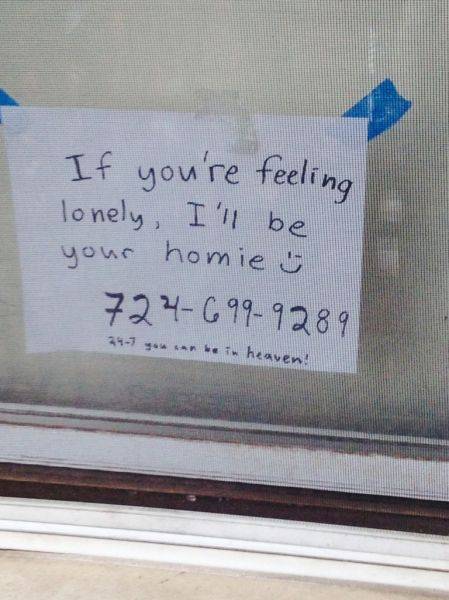 If you're feeling
lonely, I'll be
your homie :)
724-699-9289
24-7 you can be in heaven!